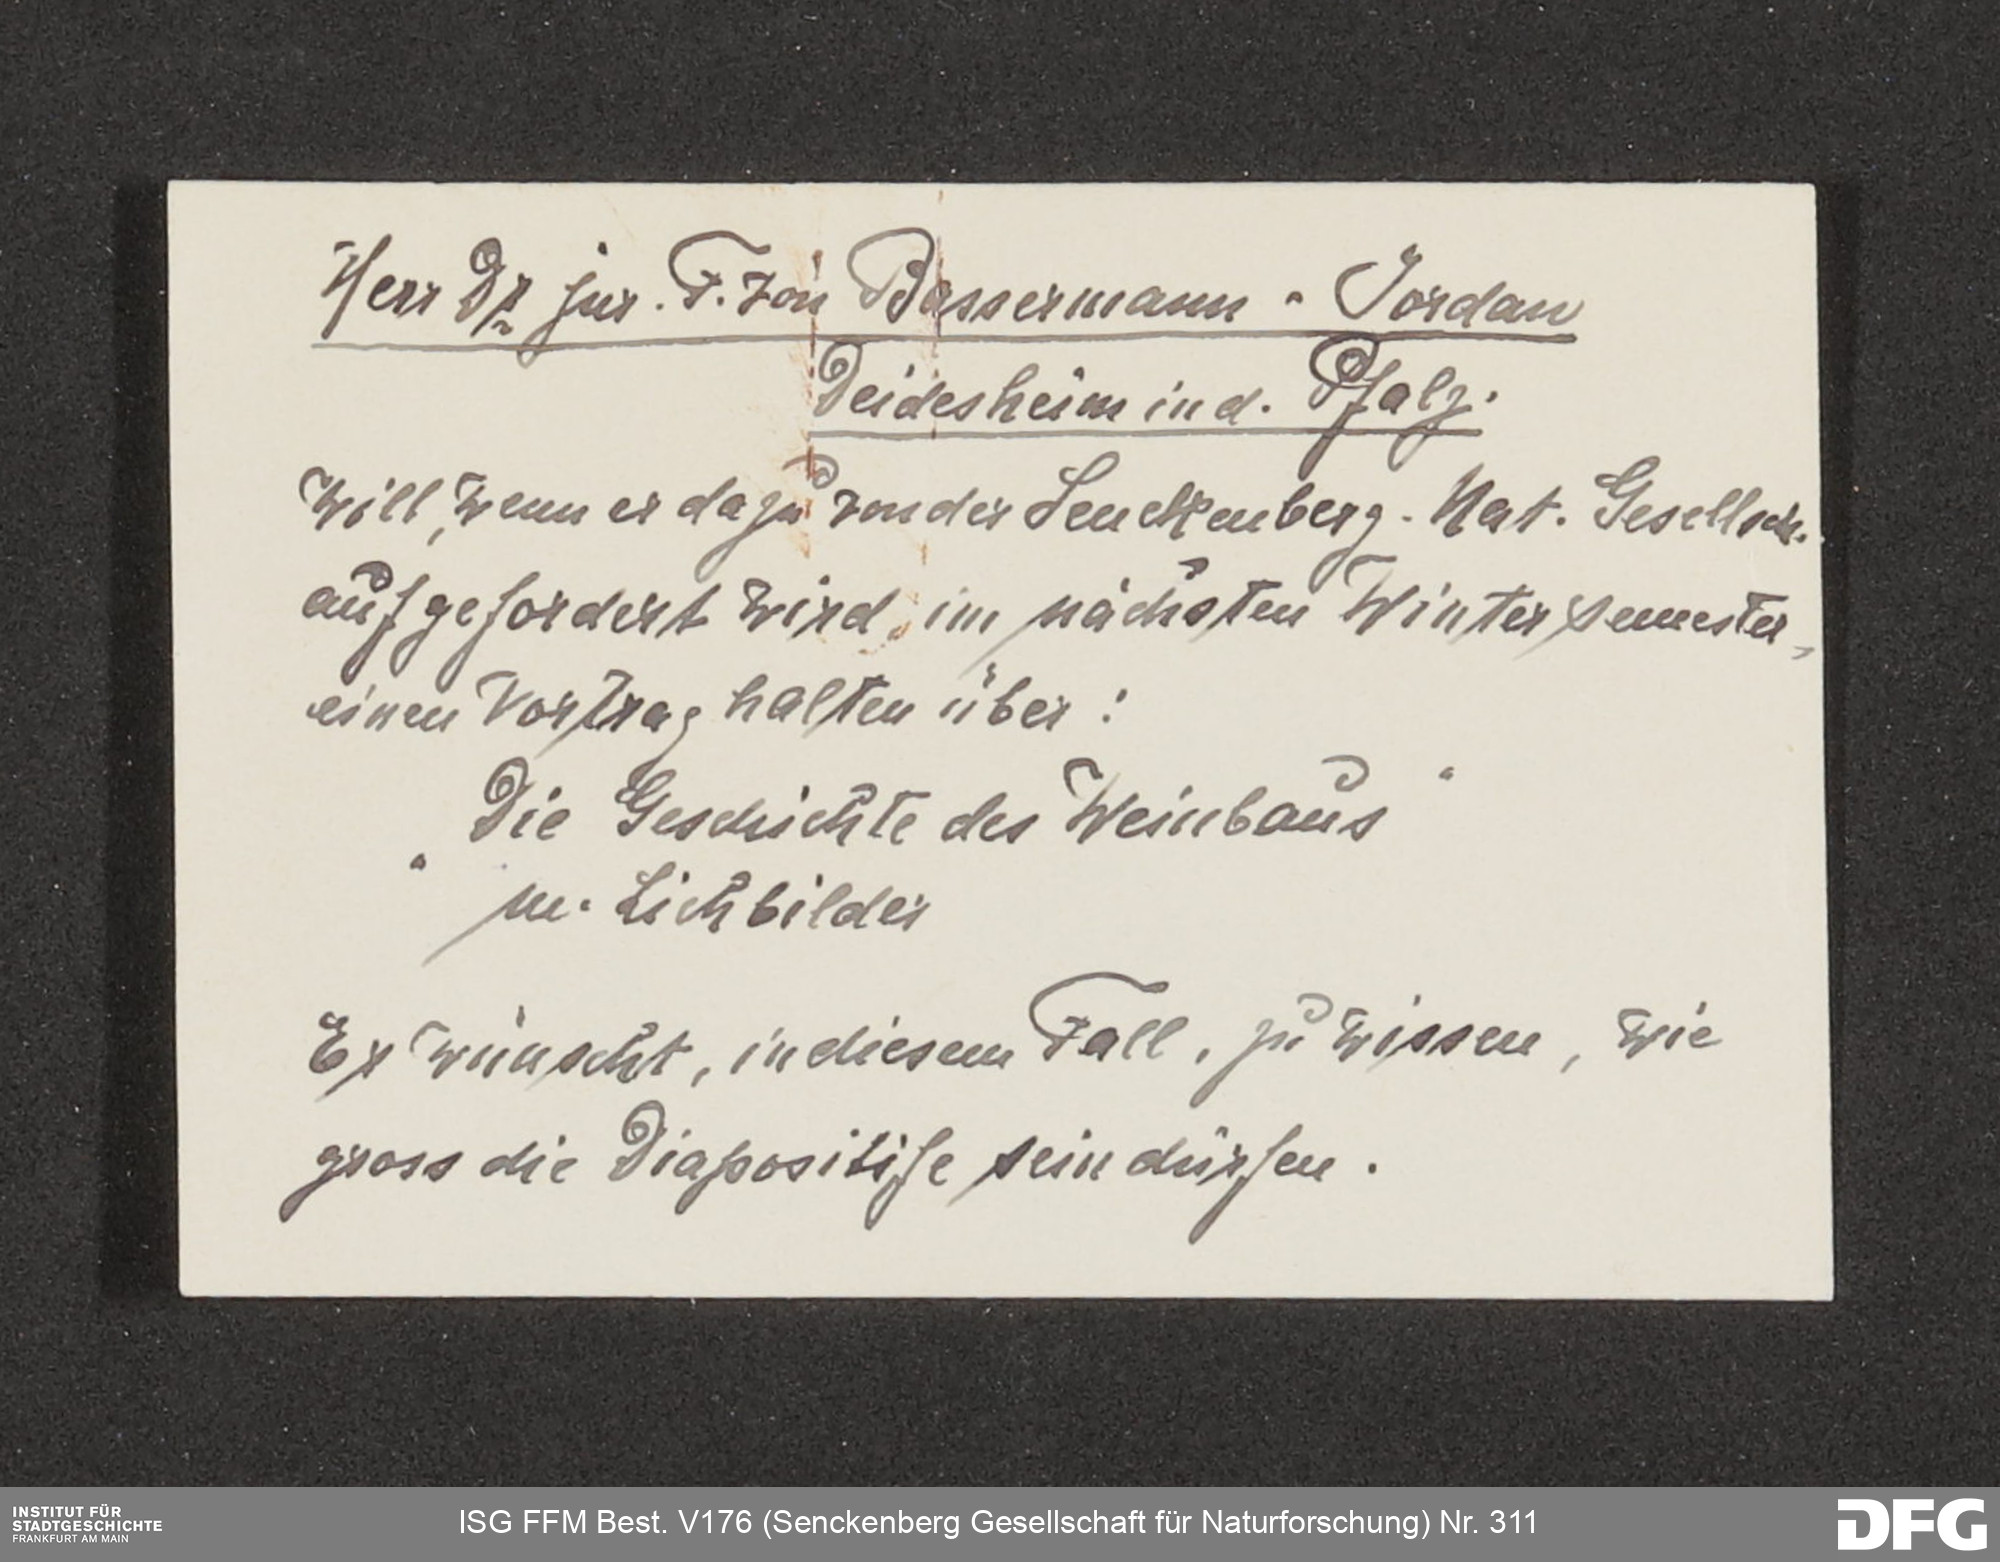 Herr Dr jur. F. von Bassermann-Jordan
Deidesheim in d. Pfalz.
Will, wenn er dazu von der Senckenberg. Nat. Gesellsch.
aufgefordert wird, im nächsten Wintersemester,
einen Vortrag halten über:
„Die Geschichte des Weinbaus"
m. Lichbilder
Er wünscht, in diesem Fall, zu wissen, wie
gross die Diapositife sein dürfen.
INSTITUT FÜR
STADTGESCHICHTE
FRANKFURT AM MAIN
ISG FFM Best. V176 (Senckenberg Gesellschaft für Naturforschung) Nr. 311
DFG